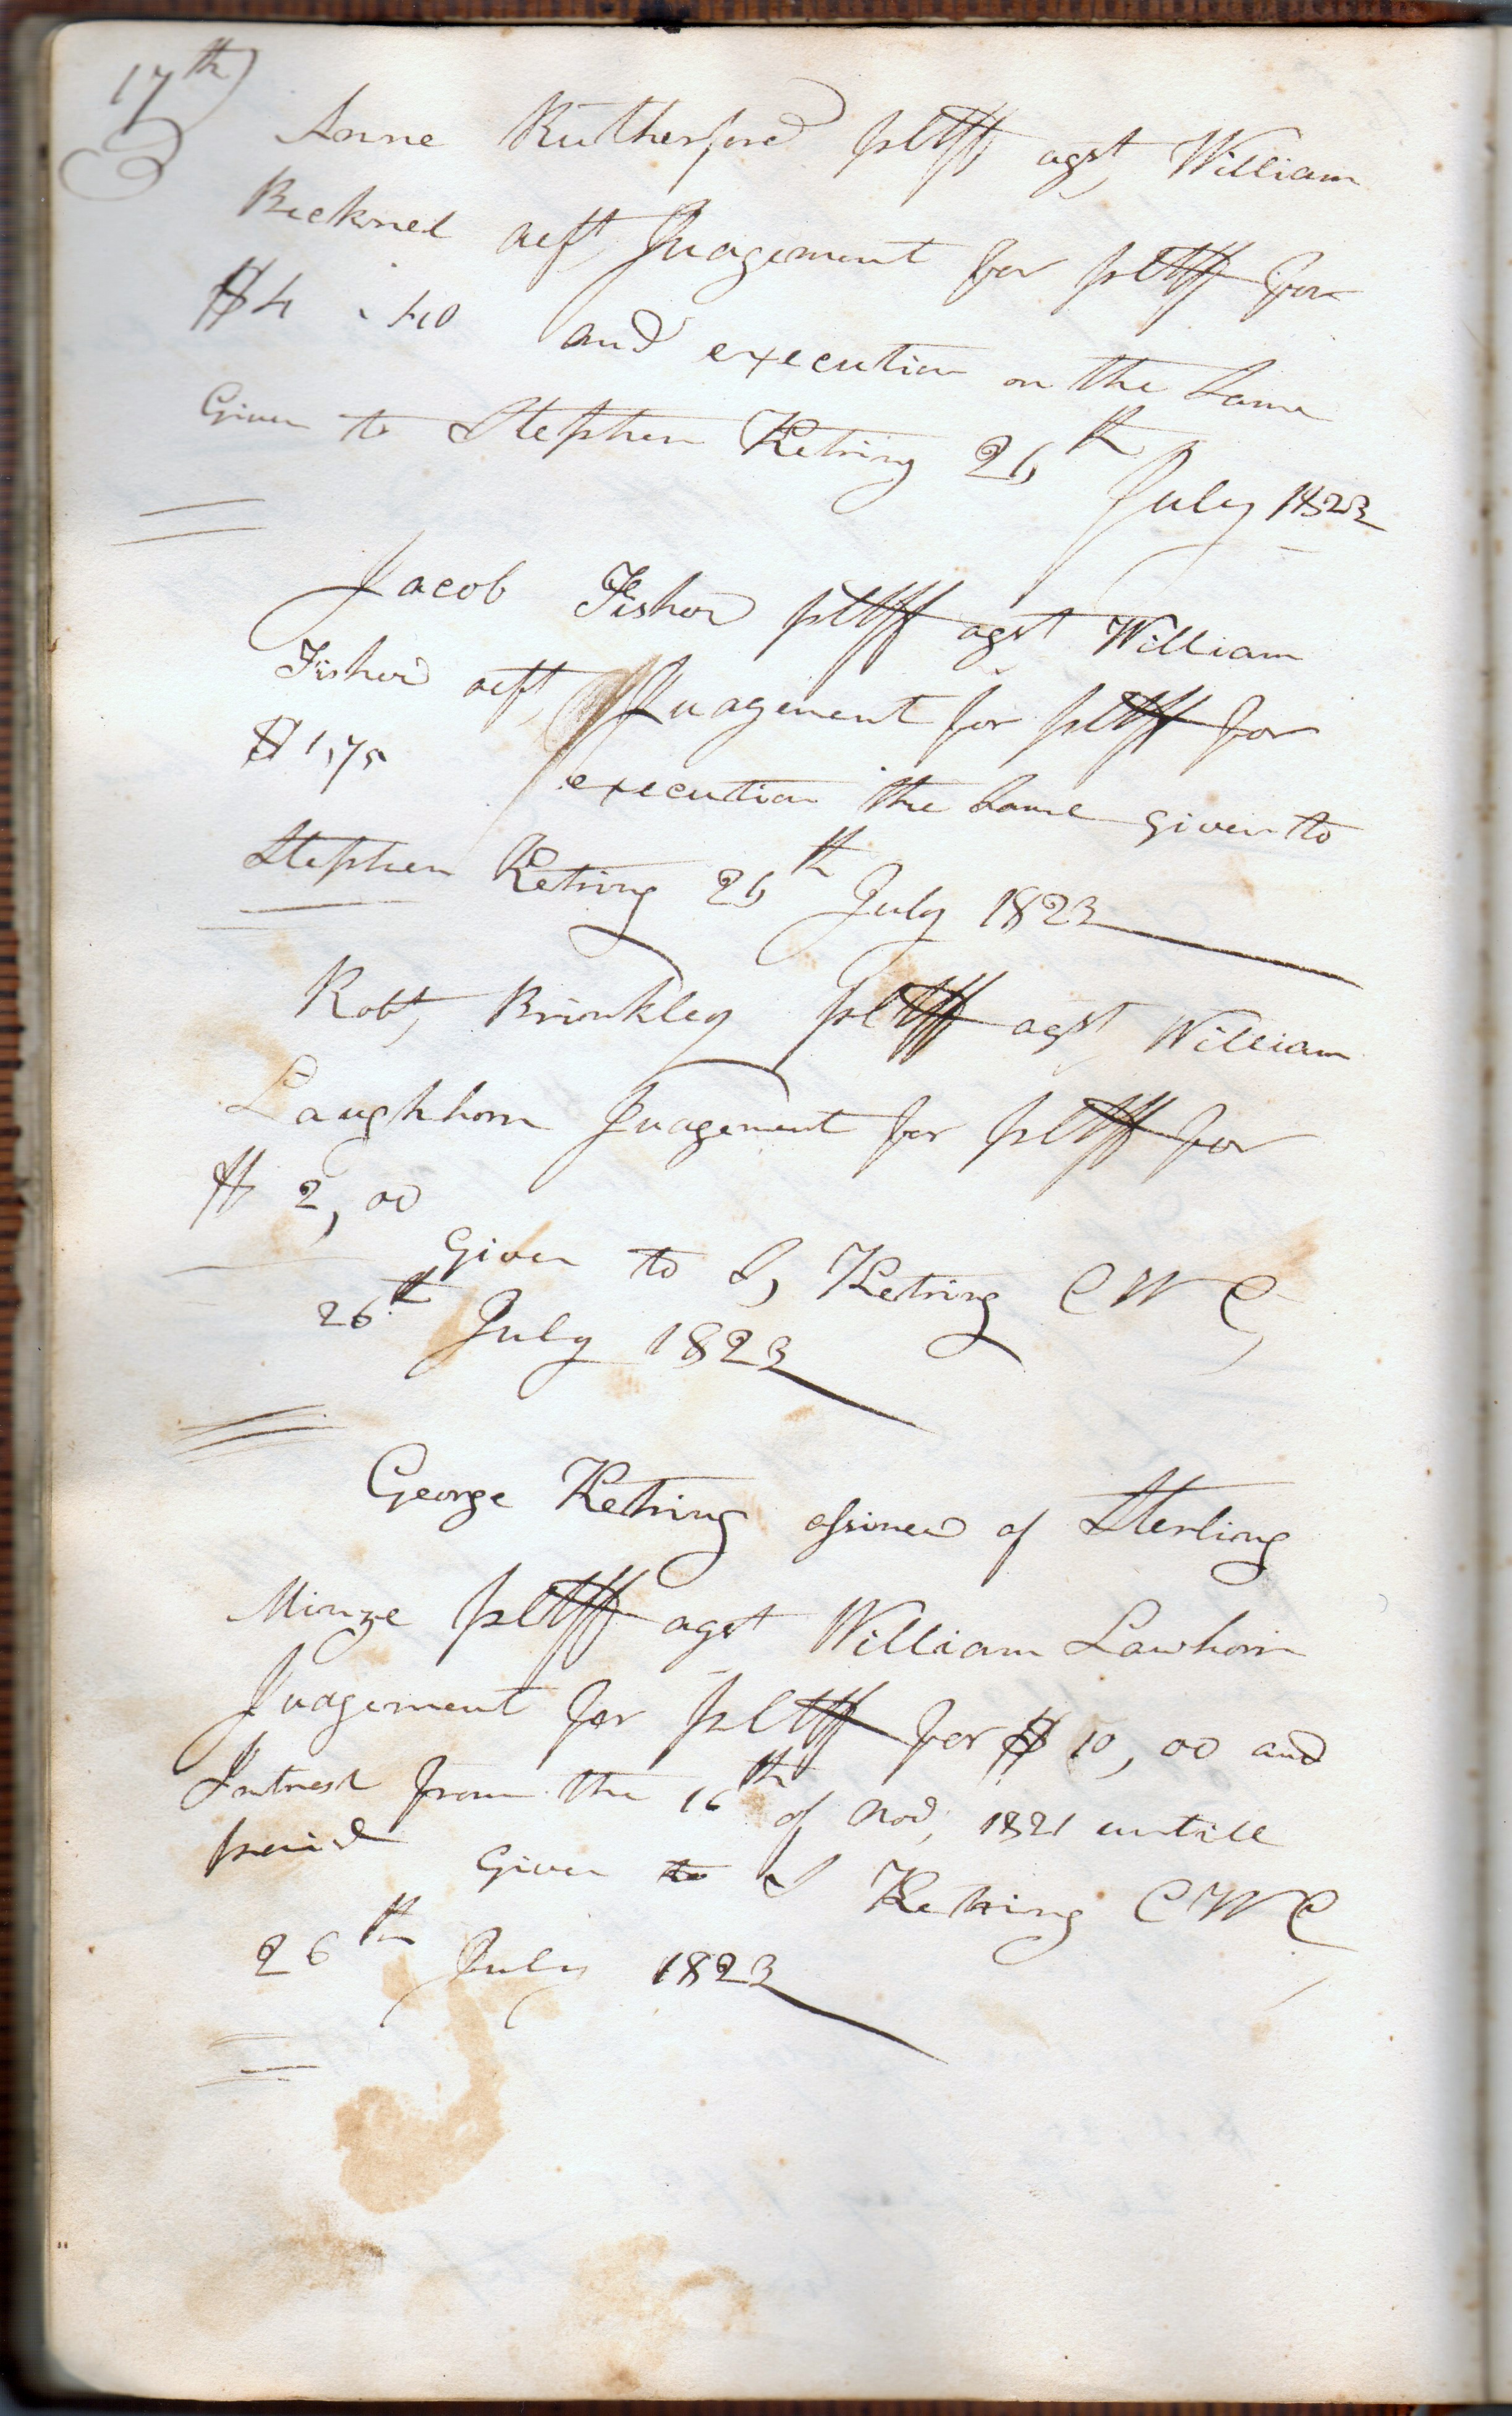 17th
Anne Rutherford pltff agst William
Bicknel deft Judgement for pltff for
$4.40 and execution on the Same
Given to Stephen Ketring 26th
July 1823
Jacob Fisher pltff agst William
Fisher deft Judgement for pltff for
$1,75 execution the Same given to
Stephen Ketring 26th July 1823
Robt, Brinkley pltff agst William
Laughhorn Judgement for pltff for
$ 2,00
Given to S, Ketring C W C,
26th July 1823
George Ketring assinee of Sterling
Minze pltff agst William Lawhorn
Judgement for pltff for $ 10,00 and
Intrest from the 16th of Nov, 1821 untill
paid Given to S Ketring C W C
26th July 1823